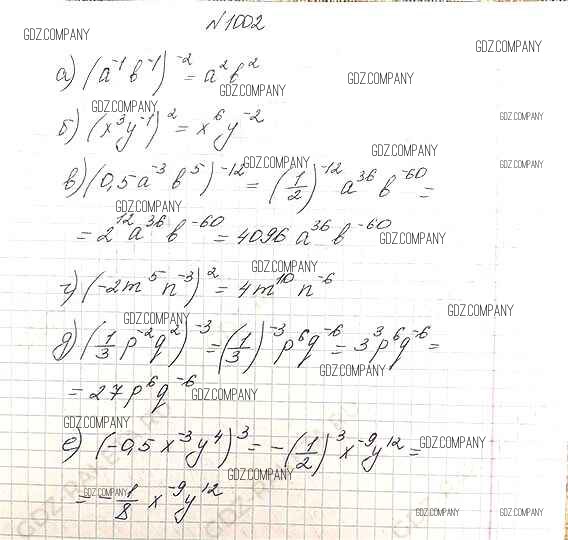 №1002
GDZ.COMPANY
GDZ.COMPANY
а) (a⁻¹ b⁻¹)⁻² = a² b²
GDZ.COMPANY
GDZ.COMPANY
GDZ.COMPANY
GDZ.COMPANY
б) (x³ y⁻¹)² = x⁶ y⁻²
GDZ.COMPANY
GDZ.COMPANY
GDZ.COMPANY
в) (0,5 a⁻³ b⁵)⁻¹² = (1/2)⁻¹² a³⁶ b⁻⁶⁰ =
GDZ.COMPANY
= 2¹² a³⁶ b⁻⁶⁰ = 4096 a³⁶ b⁻⁶⁰
GDZ.COMPANY
GDZ.COMPANY
г) (-2m⁵ n⁻³)² = 4m¹⁰ n⁻⁶
GDZ.COMPANY
GDZ.COMPANY
д) (1/3 p⁻² q²)⁻³ = (1/3)⁻³ p⁶ q⁻⁶ = 3³ p⁶ q⁻⁶ =
= 27 p⁶ q⁻⁶
GDZ.COMPANY
GDZ.COMPANY
е) (-0,5 x⁻³ y⁴)³ = -(1/2)³ x⁻⁹ y¹² =
GDZ.COMPANY
GDZ.COMPANY
= -1/8 x⁻⁹ y¹²
GDZ.COMPANY
GDZ.COMPANY
GDZ.COMPANY